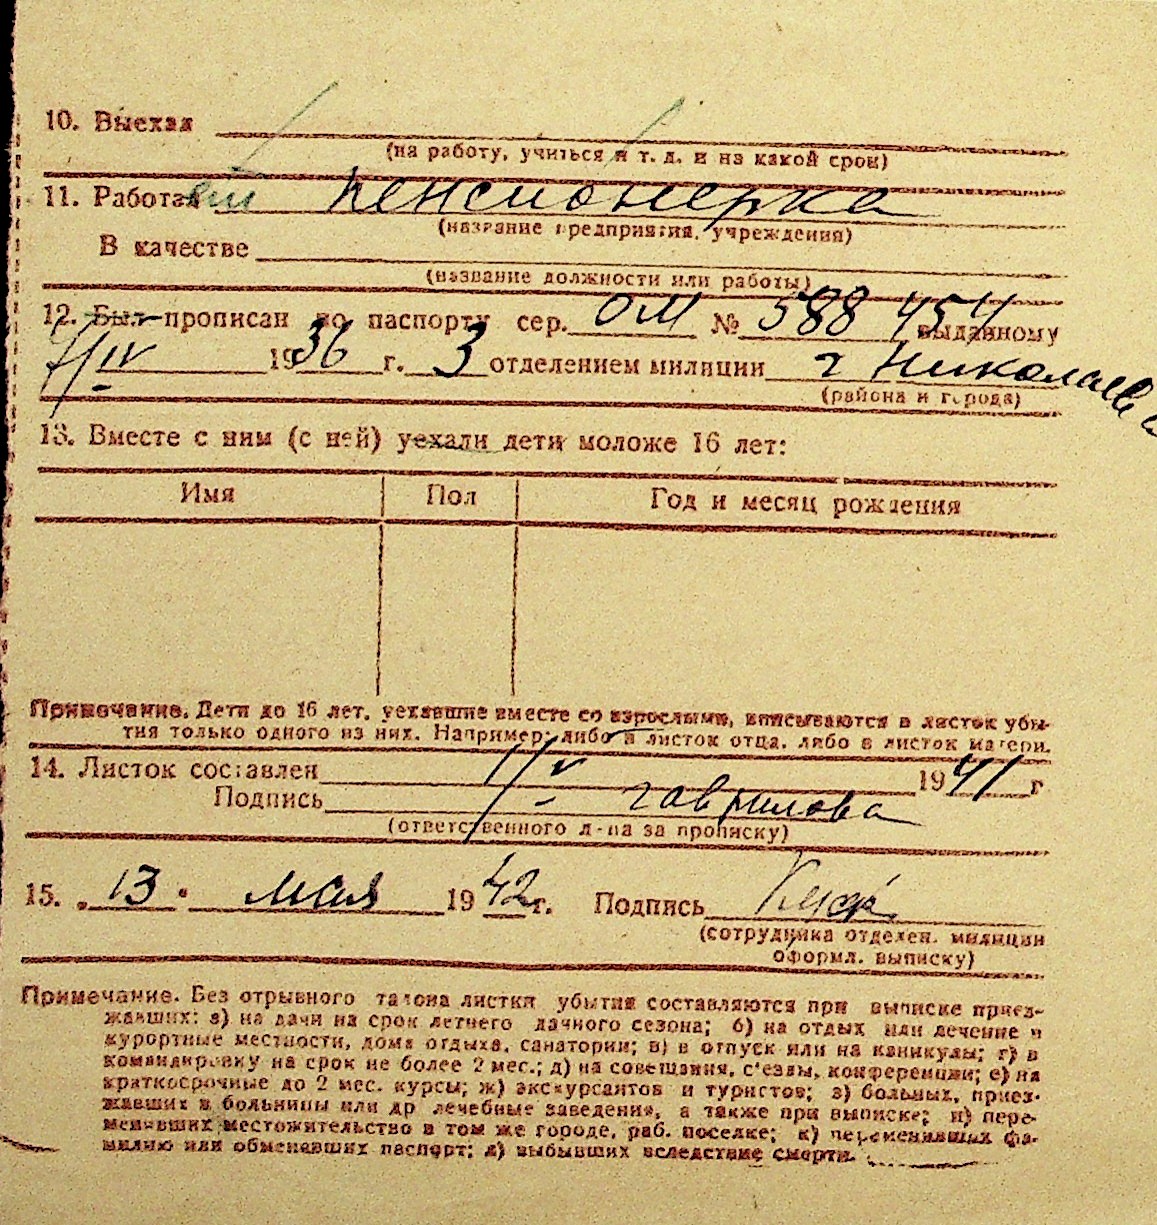 10. Выехал
(на работу, учиться и т. д. и на какой срок)
11. Работал пенсионерка
(название предприятия, учреждения)
В качестве
(название должности или работы)
12. Был прописан по паспорту сер. ОМ № 588454 выданному
7/IV 1936 г. 3 отделением милиции г Николаева
(района и города)
13. Вместе с ним (с ней) уехали дети моложе 16 лет:
Имя Пол Год и месяц рождения
Примечание. Дети до 16 лет, уехавшие вместе со взрослыми, вписываются в листок убы-
тия только одного из них. Например: либо в листок отца, либо в листок матери.
14. Листок составлен 1/V 1941 г
Подпись Гаврилова
(ответственного л-ца за прописку)
15. „13" мая 1942 г. Подпись
(сотрудника отделен. милиции
оформл. выписку)
Примечание. Без отрывного талона листки убытия составляются при выписке приез-
жавших: а) на дачи на срок летнего дачного сезона; б) на отдых или лечение в
курортные местности, дома отдыха, санатории; в) в отпуск или на каникулы; г) в
командировку на срок не более 2 мес.; д) на совещания, с'езды, конференции; е) на
краткосрочные до 2 мес. курсы; ж) экскурсантов и туристов; з) больных, приез-
жавших в больницы или др лечебные заведения, а также при выписке; и) пере-
менивших местожительство в том же городе, раб. поселке; к) переменивших фа-
милию или обменявших паспорт; л) выбывших вследствие смерти.